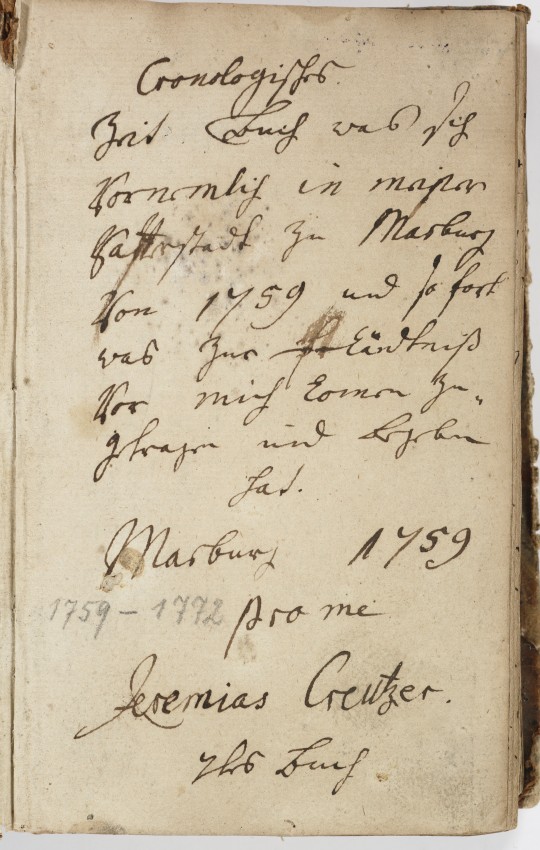 Cronologisches
Zeit Buch was sich
Vornemlich in meiner
Vatterstadt zu Marburg
Von 1759 und so fort
was zur Kändtniß
Vor mich komen zu„
getragen und begeben
hat.
Marburg 1759
1759 – 1772 pro me
Jeremias Creutzer.
Buch